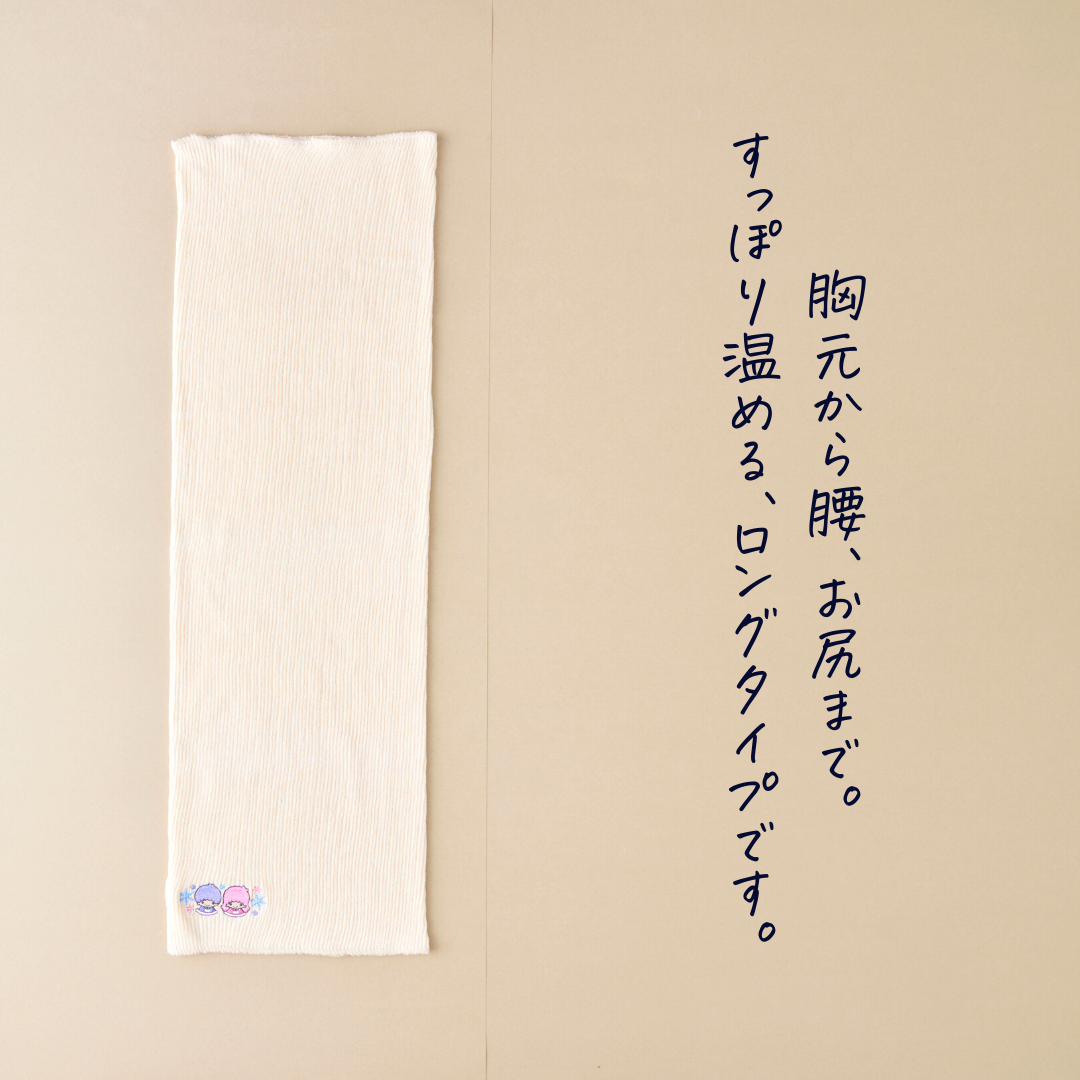 胸元から腰、お尻まで。
すっぽり温める、ロングタイプです。